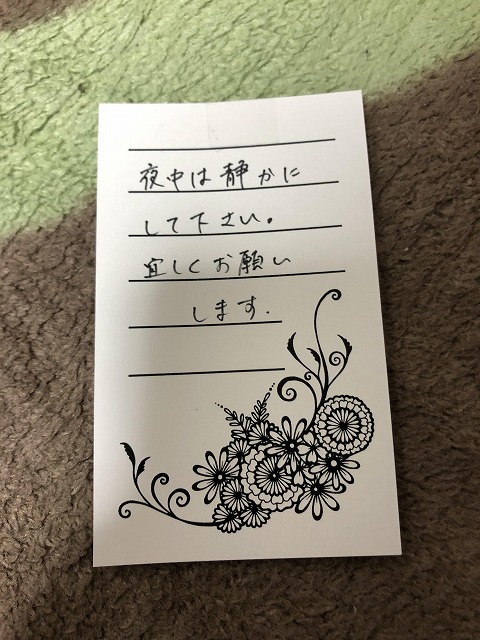 夜中は静かに
して下さい。
宜しくお願い
します.